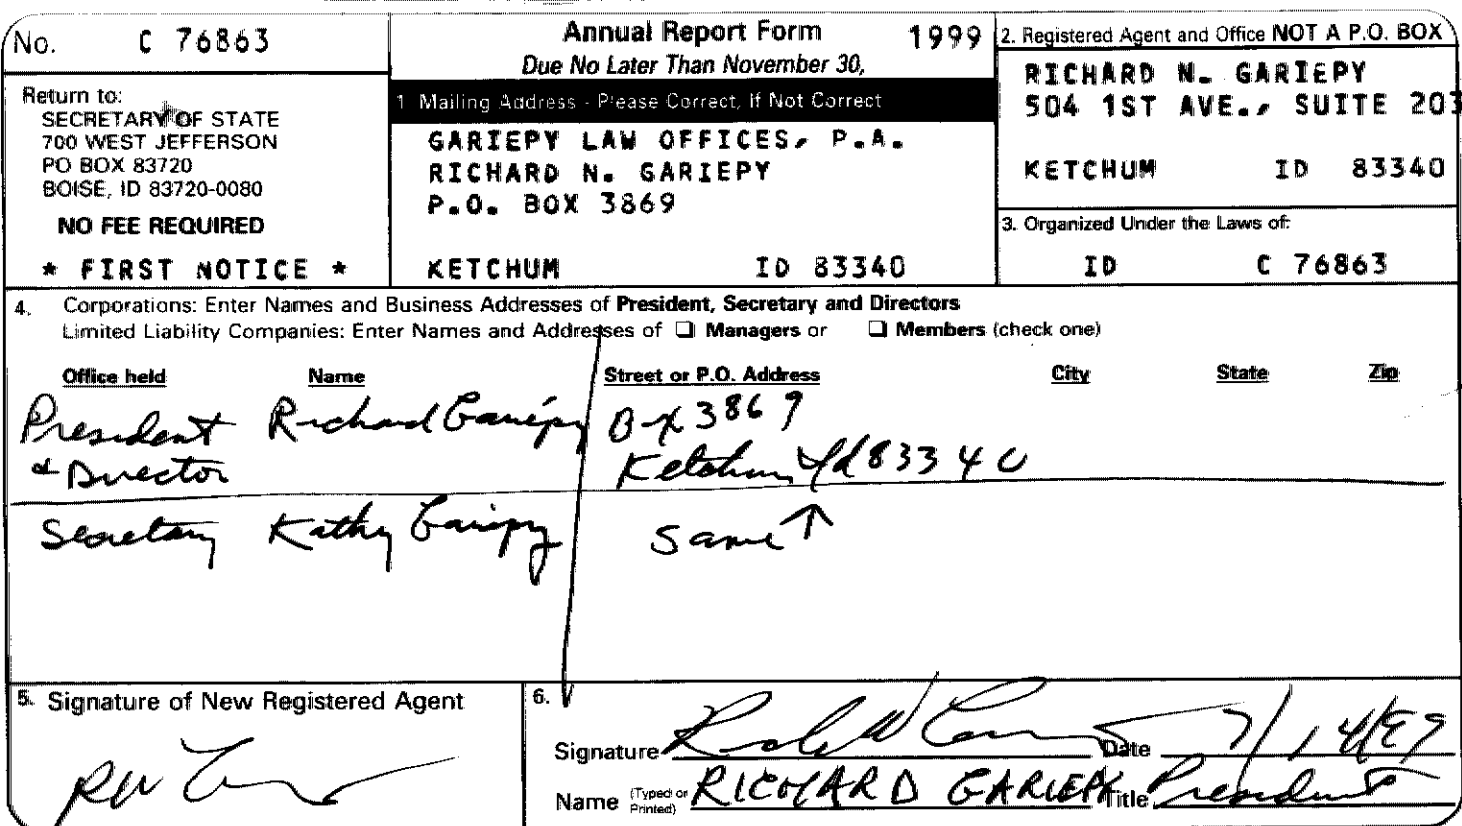 No. C 76863
Return to:
SECRETARY OF STATE
700 WEST JEFFERSON
PO BOX 83720
BOISE, ID 83720-0080
NO FEE REQUIRED
* FIRST NOTICE *
Annual Report Form 1999
Due No Later Than November 30,
1 Mailing Address - Please Correct, If Not Correct
GARIEPY LAW OFFICES, P.A.
RICHARD N. GARIEPY
P.O. BOX 3869
KETCHUM ID 83340
2. Registered Agent and Office NOT A P.O. BOX
RICHARD N. GARIEPY
504 1ST AVE., SUITE 203
KETCHUM ID 83340
3. Organized Under the Laws of:
ID C 76863
4. Corporations: Enter Names and Business Addresses of President, Secretary and Directors
Limited Liability Companies: Enter Names and Addresses of ❑ Managers or ❑ Members (check one)
Office held Name Street or P.O. Address City State Zip
President Richard Gariepy Box 3869
& Director Ketchum Id 83340
Secretary Kathy Gariepy Same ↑
5. Signature of New Registered Agent
6.
Signature Date 7/14/99
Name (Typed or Printed) RICHARD GARIEPY Title President